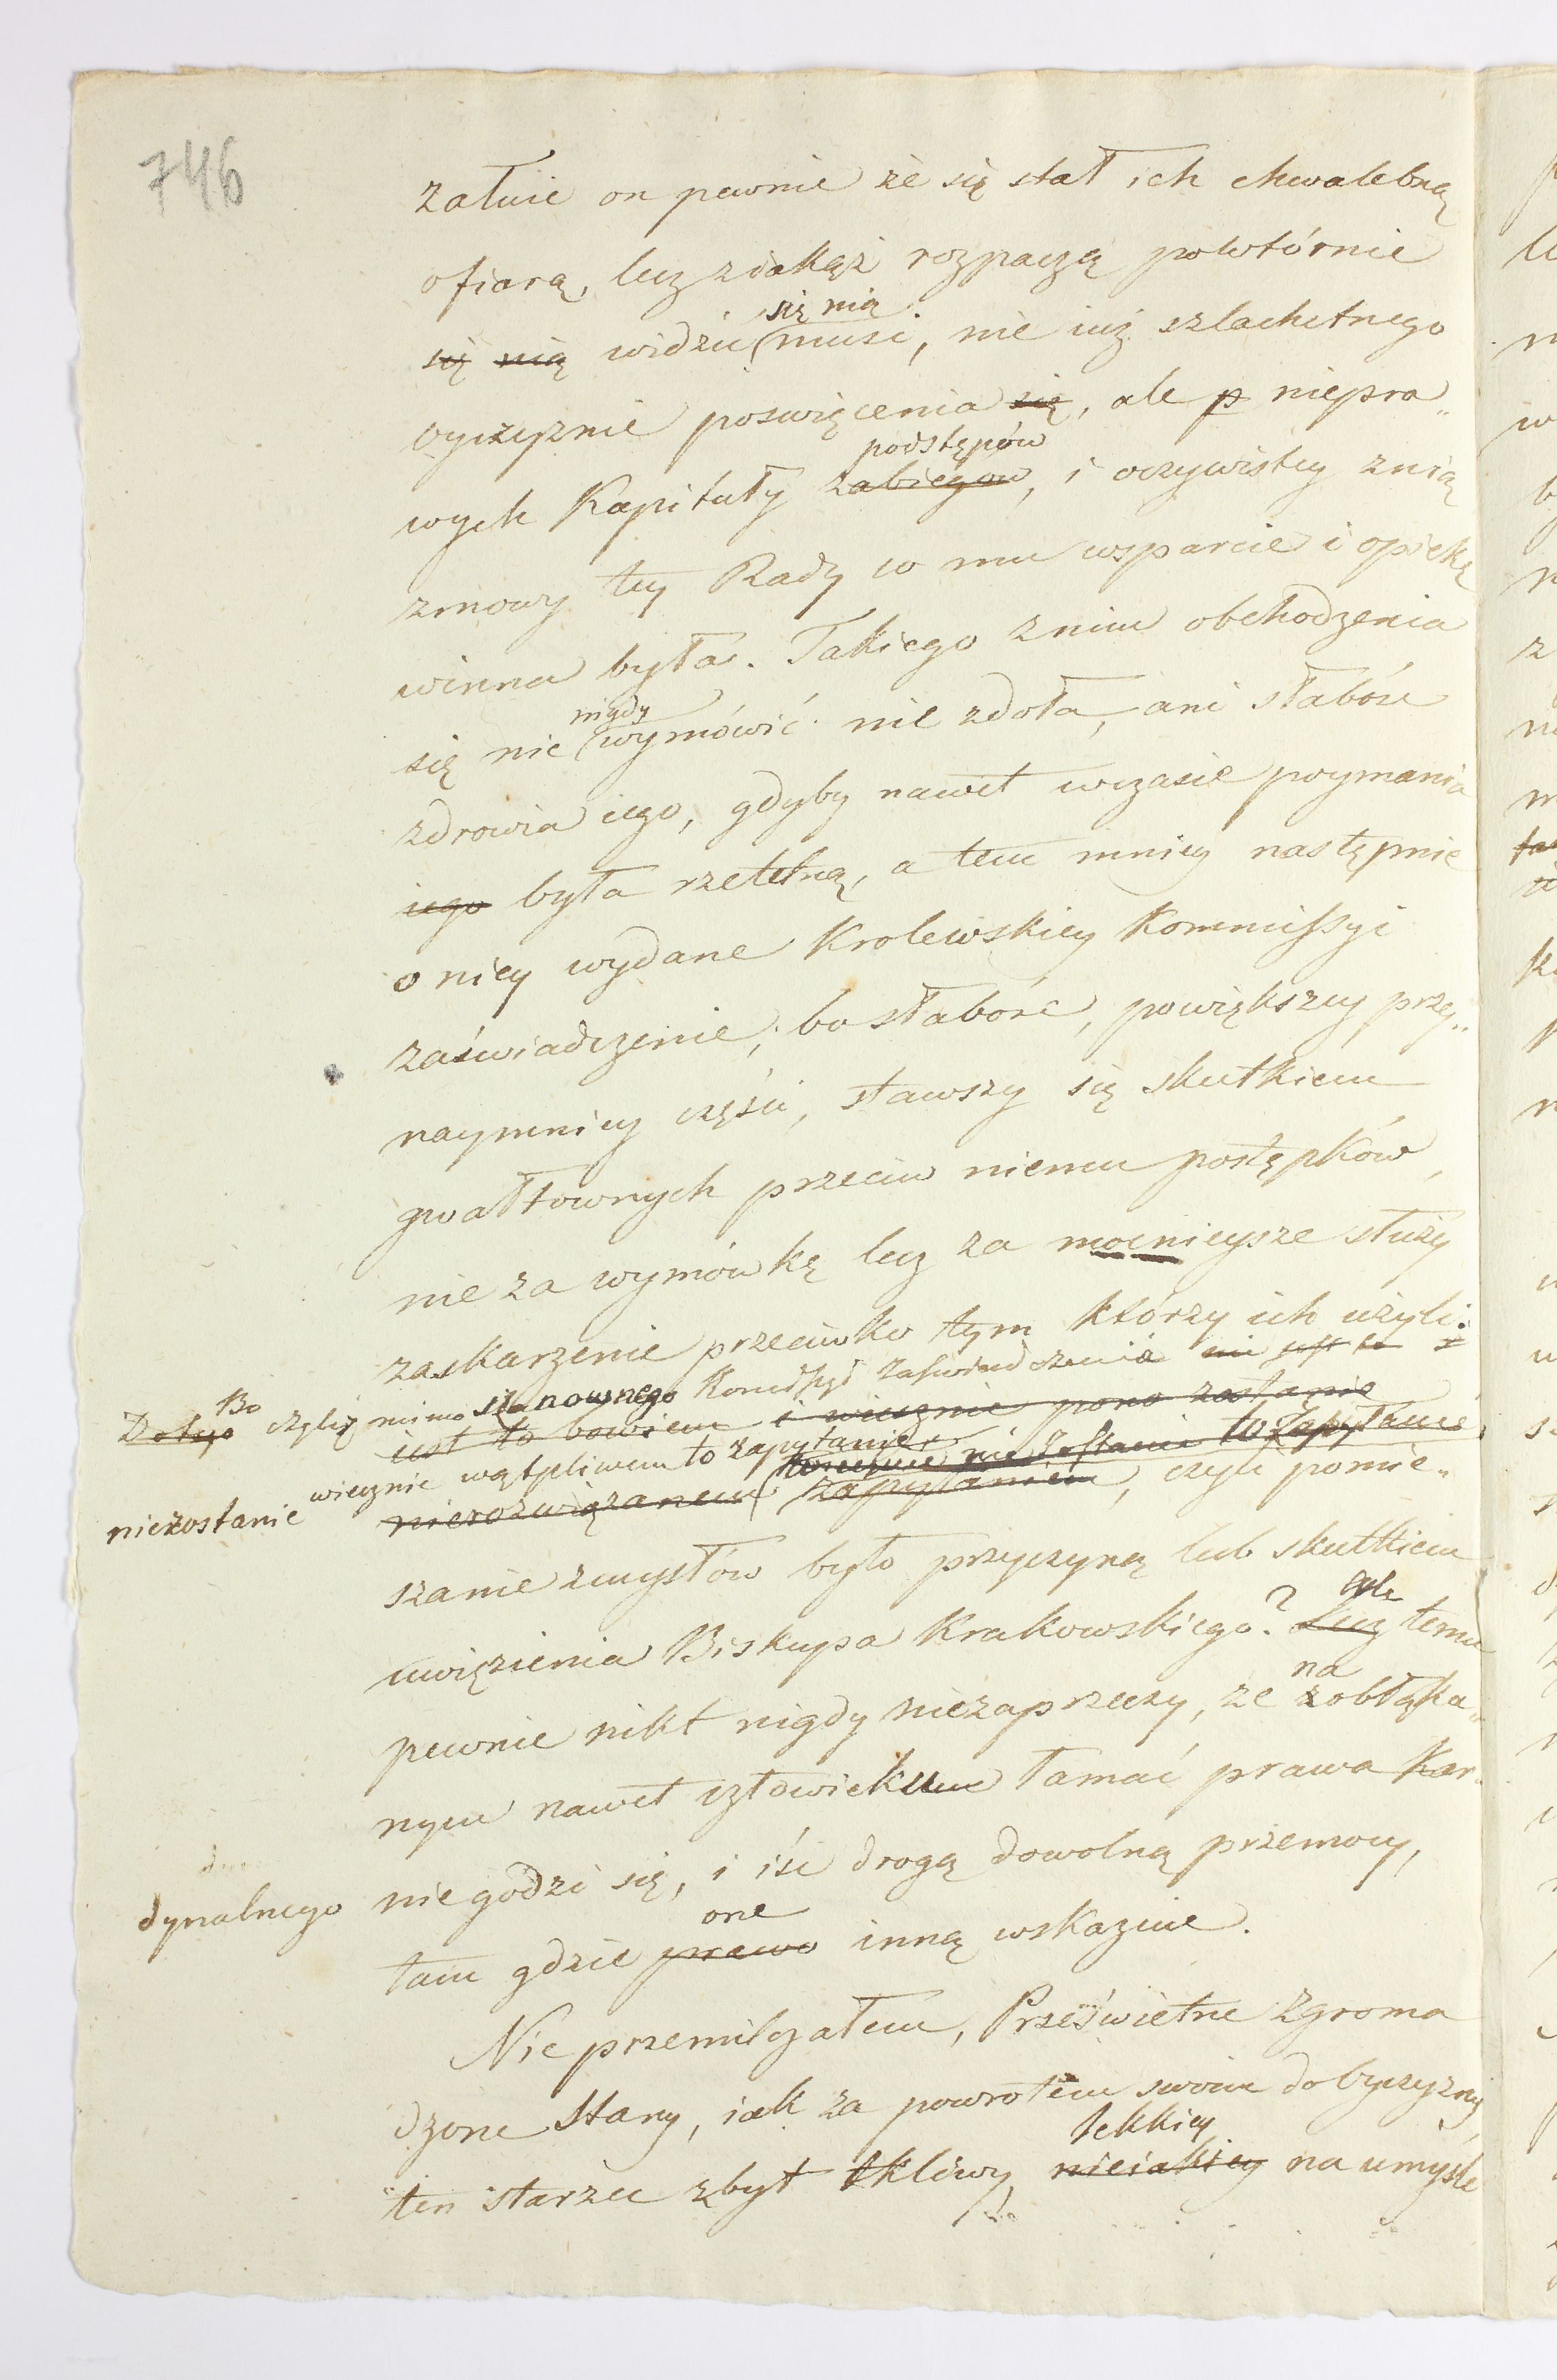 746
załuie on pewnie że się stał ich chwalebną
ofiarą, lecz ziakąż rozpaczą powtórnie
się nią
się nią widzieć musi, nie iuż szlachetnego
oyczyznie poswięcenia się, ale p niepra„
podstępów
wych Kapituły zabiegow, i oczywistey znią
zmowy tey Rady co mu wsparcie i opiekę
winna była. Takiego znim obchodzenia
nigdy
się nic wymówić nie zdoła, ani słabość
zdrowia iego, gdyby nawet wczasie poymania
iego była rzetelną, a tem mniey następnie
o niey wydane Krolewskiey Kommissyi
zaświadczenie; bo słabość, powiększey przy„
naymniey części, stawszy się skutkiem
gwałtownych przeciw niemu postępków,
nie za wymówkę lecz za mocnieysze służy
zaskarzenie przeciwko tym którzy ich użyli:
Bo
czyliż mimo stanownego Kommissyi zaświadczenia
iest to bowiem i wiecznie pono zostanie
wiecznie wątpliwem to zapytanie
niezostanie
nierozwiązanem zapytaniem, czyli pomie„
szanie zmysłów było przyczyną lub skutkiem
ale
uwięzienia Biskupa Krakowskiego? Lecz temu
na
pewnie nikt nigdy niezaprzeczy, że z obłąka„
nym nawet człowiekiem łamać prawa Kar„
dynalnego
niegodzi się, i iść drogą dowolną przemocy,
one
tam gdzie prawo inną wskazuie.
Nie przemilczałem, Prześwietne Zgroma
dzone Stany, iak za powrotem swoim do oyczyzny
lekkiey
ten starzec zbyt tkliwy, nieiakiey na umyśle